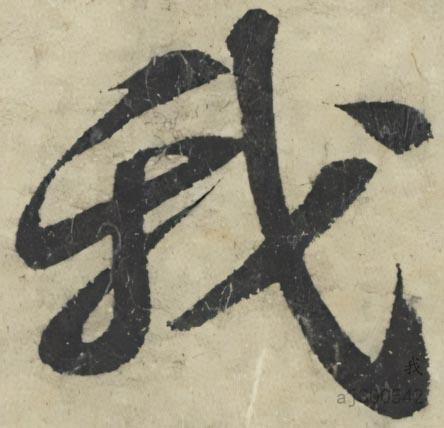 我
我
ajC00542